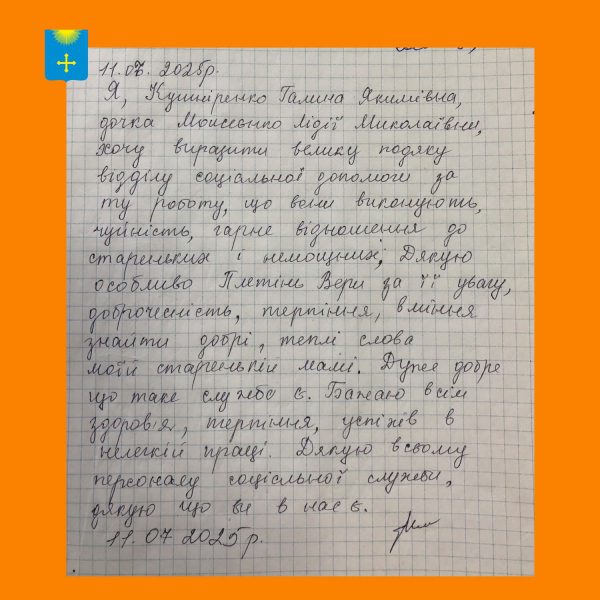 11.07. 2025р.
Я, Кушніренко Галина Якимівна,
дочка Моисеєнко Лідії Миколаївни,
хочу виразити велику подяку
відділу соціальної допомоги за
ту роботу, що вони виконують,
чуйність, гарне відношення до
стареньких і немощних; Дякую
особливо Плетінь Вери за її увагу,
доброчесність, терпіння, вміння
знайти добрі, теплі слова
моїй старенькій мамі. Дуже добре
що таке служба є. Бажаю всім
здоров'я, терпіння, успіхів в
нелегкій праці. Дякую всьому
персоналу соціальної служби,
дякую що ви в нас є.
11.07 2025р.